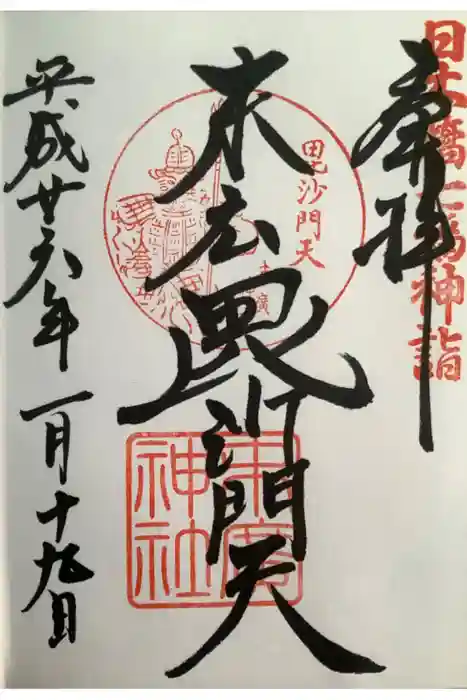 日本橋七福神詣
奉拝
毗沙門天
末広毘沙門天
末廣神社
平成廿六年一月十九日